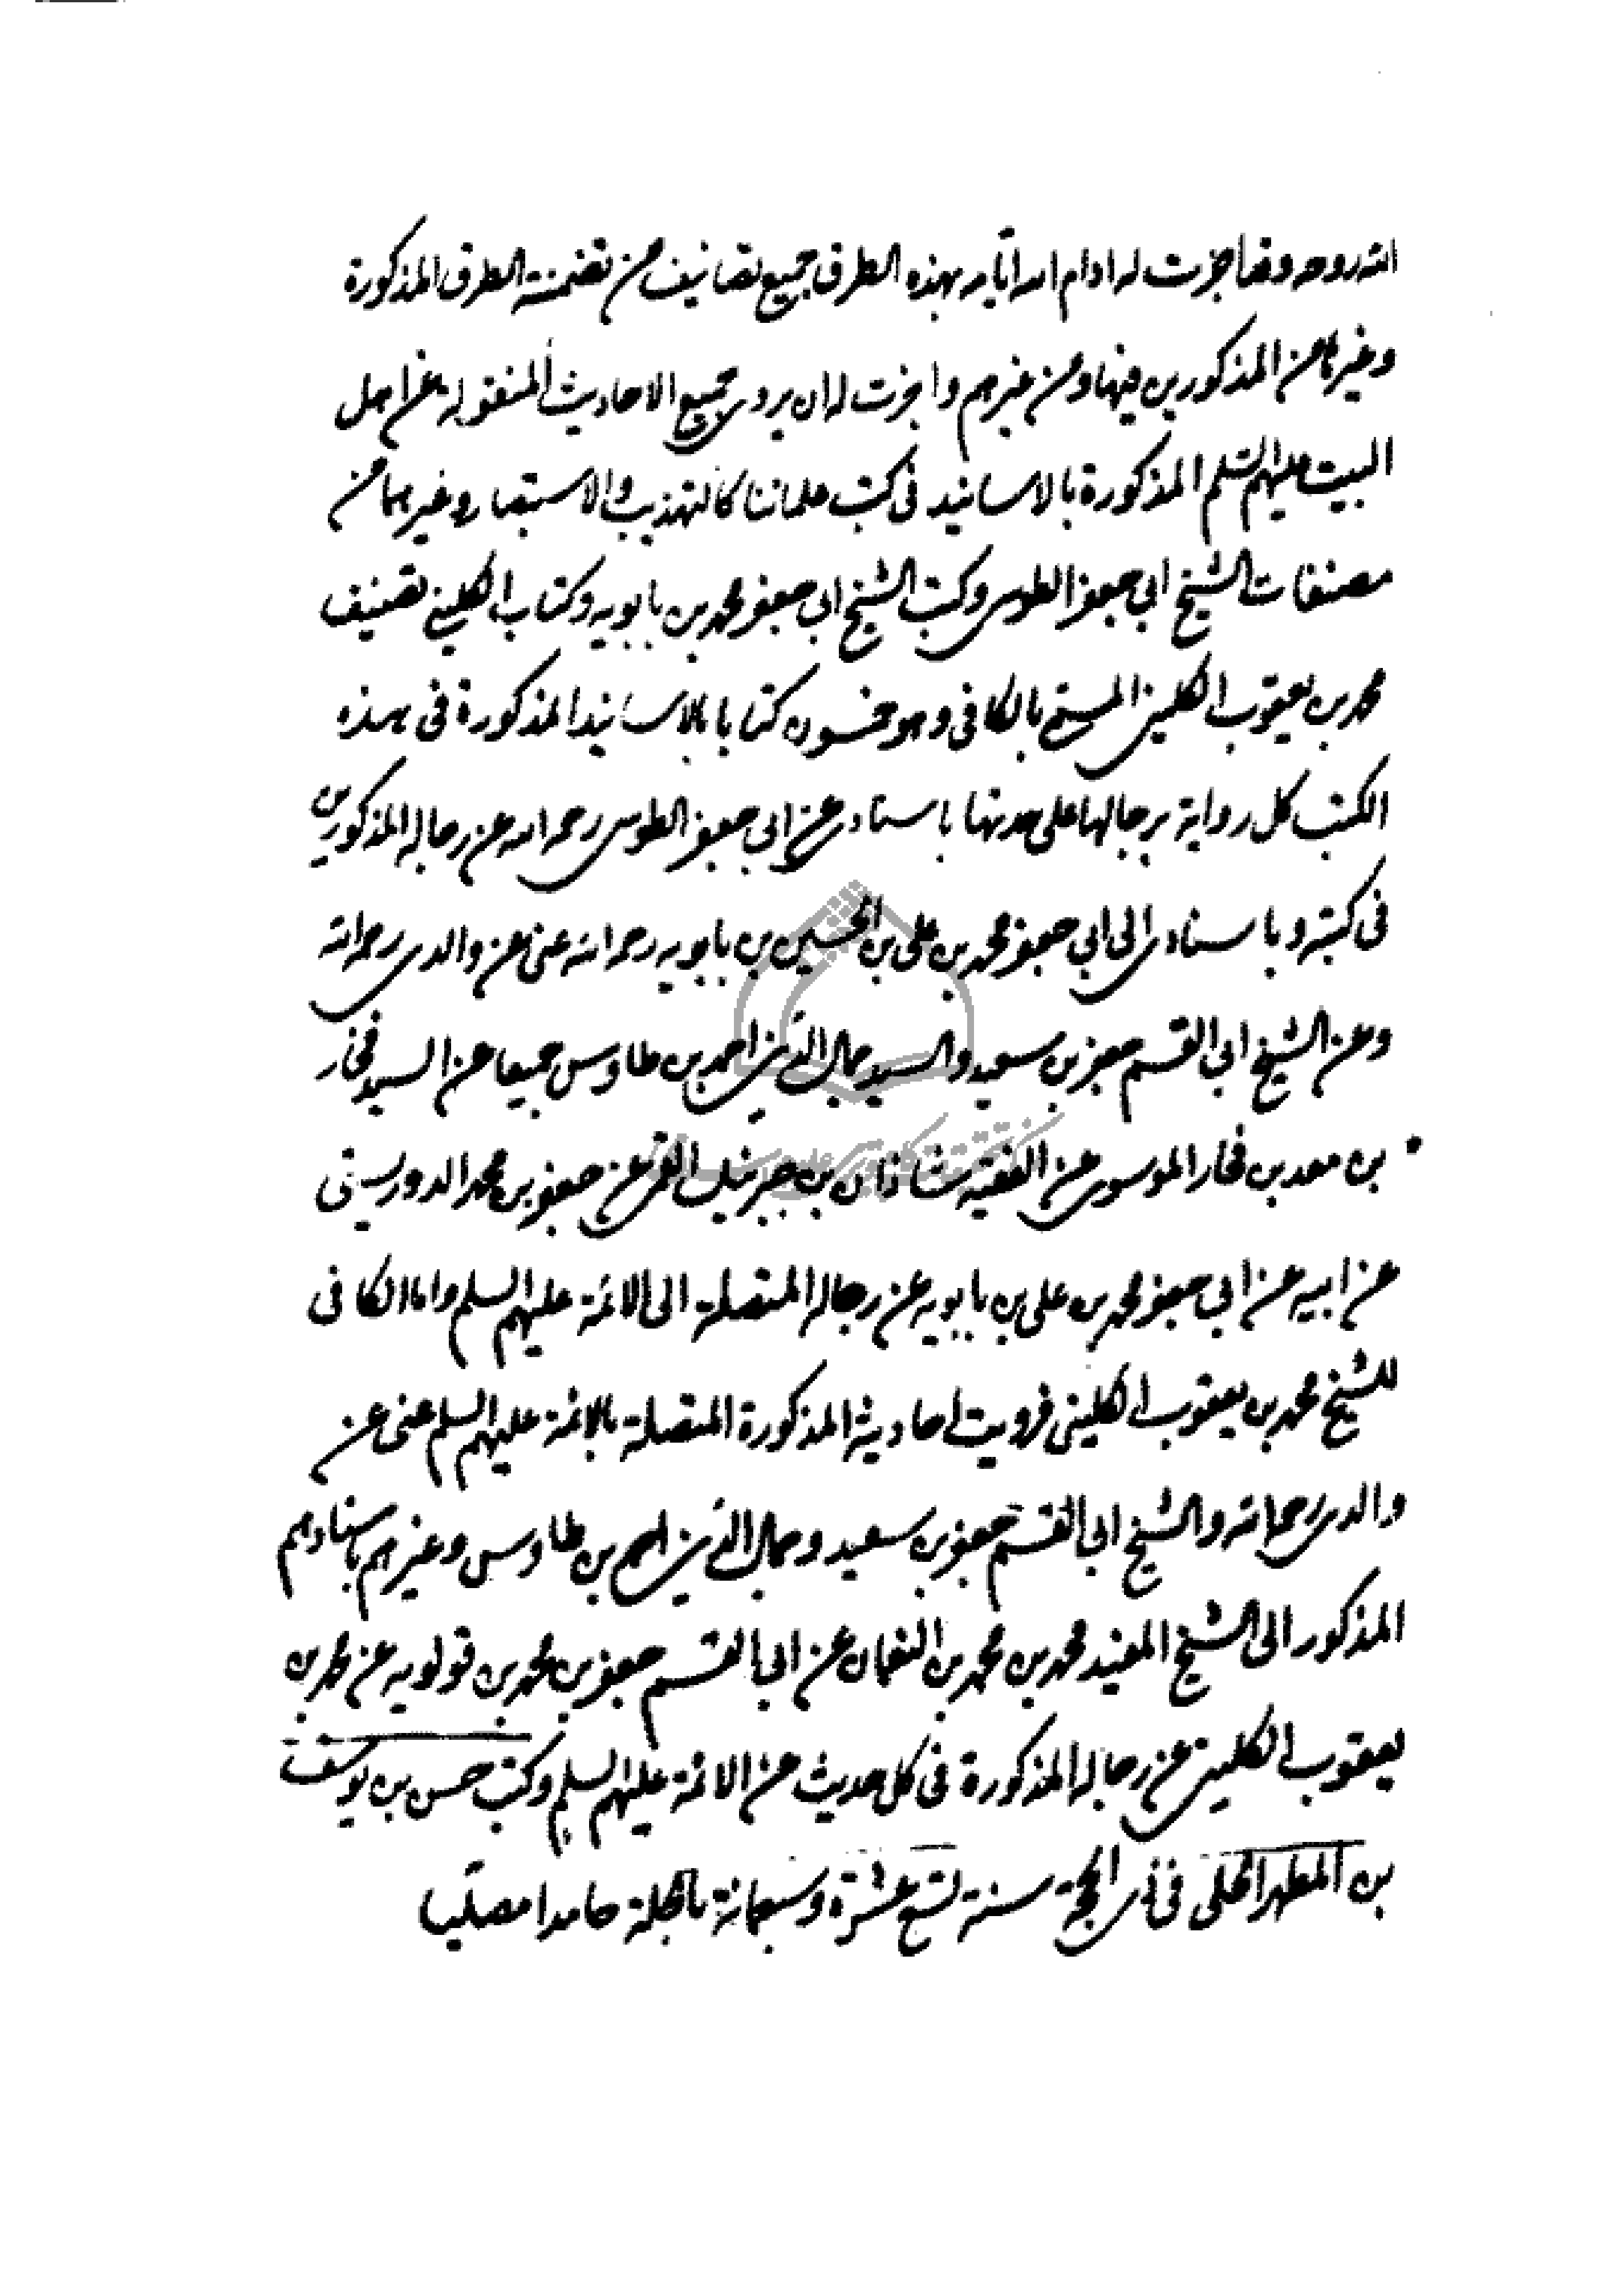 الله روحه وقد اجزت له ادام الله ايامه بهذه الطرق جميع تصانيف من تضمنته الطرق المذكورة
وغيرها من المذكورين فيها ومن غيرهم واجزت له ان يروي جميع الاحاديث المنقولة عن اهل
البيت عليهم السلم المذكورة بالاسانيد في كتب علمائنا كالتهذيب والاستبصار وغيرهما من
مصنفات الشيخ ابي جعفر الطوسي وكتب الشيخ ابي جعفر محمد بن بابويه وكتاب الكليني تصنيف
محمد بن يعقوب الكليني المسمى بالكافي وهو خمسون كتابا بالاسانيد المذكورة في هذه
الكتب كل رواية برجالها على حدتها باسنادي عن ابي جعفر الطوسي رحمه الله عن رجاله المذكورين
في كتبه وباسنادي الى ابي جعفر محمد بن علي بن الحسين بن بابويه رحمه الله عني عن والدي رحمه الله
وعن الشيخ ابي القسم جعفر بن سعيد والسيد جمال الدين احمد بن طاوس جميعا عن السيد فخار
بن معد بن فخار الموسوي عن الفقيه شاذان بن جبرئيل القمي عن جعفر بن محمد الدوريستي
عن ابيه عن ابي جعفر محمد بن علي بن بابويه عن رجاله المتصلة الى الائمة عليهم السلم واما الكافي
للشيخ محمد بن يعقوب الكليني فرويت احاديثه المذكورة المتصلة بالائمة عليهم السلم عني عن
والدي رحمه الله والشيخ ابي القسم جعفر بن سعيد وجمال الدين احمد بن طاوس وغيرهم باسنادهم
المذكور الى الشيخ المفيد محمد بن محمد بن النعمان عن ابي القسم جعفر بن محمد بن قولويه عن محمد بن
يعقوب الكليني عن رجاله المذكورة في كل حديث عن الائمة عليهم السلم وكتب حسن بن يوسف
بن المطهر الحلي في ذي الحجة سنة تسع عشرة وسبعمائة بالحلة حامدا مصليا